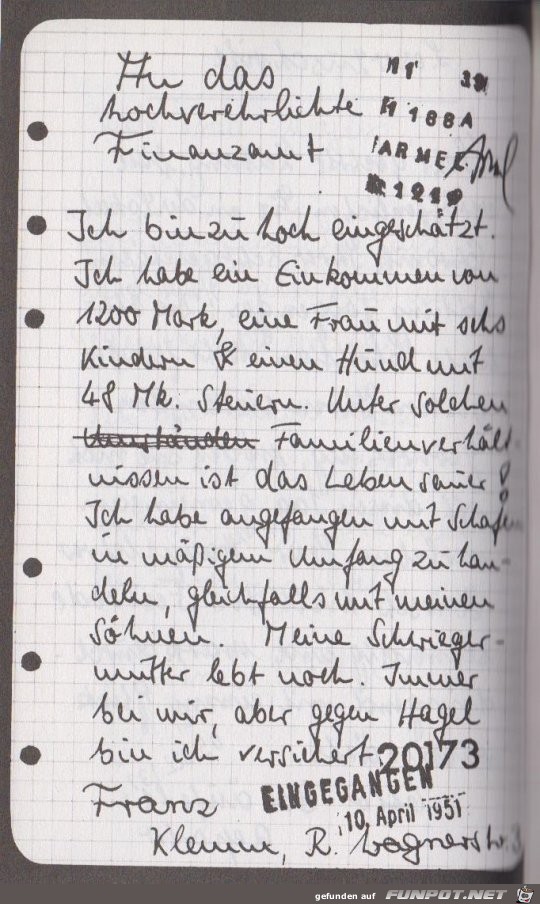 An das
hochverehrlichte
Finanzamt
ARMEE
Ich bin zu hoch eingeschätzt.
Ich habe ein Einkommen von
1200 Mark, eine Frau mit sechs
Kindern & einen Hund mit
48 Mk. Steuern. Unter solchen
Umständen Familienverhält-
nissen ist das Leben sauer!
Ich habe angefangen mit Schafen
in mäßigem Umfang zu han-
deln, gleichfalls mit meinen
Söhnen. Meine Schwieger-
mutter lebt noch. Immer
bei mir, aber gegen Hagel
bin ich versichert
20173
EINGEGANGEN
10. April 1951
Franz
Klemm, R. Wagnerstr.
gefunden auf FUNPOT.NET